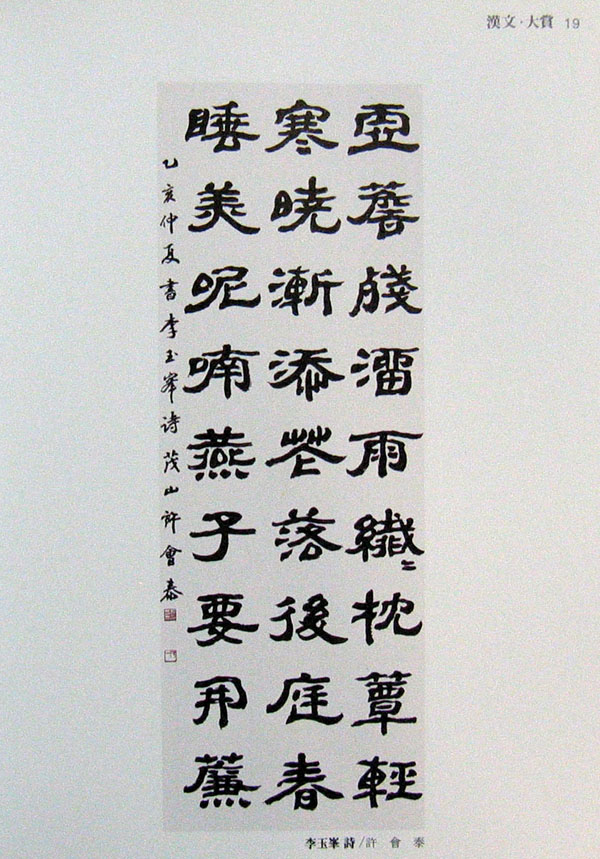 漢文·大賞 19
虛簷殘溜雨纖〻枕簟輕
寒曉漸添花落後庭春
睡美呢喃燕子要開簾
乙亥仲夏書李玉峯詩茂山許會泰
李玉峯 詩/許 會 泰